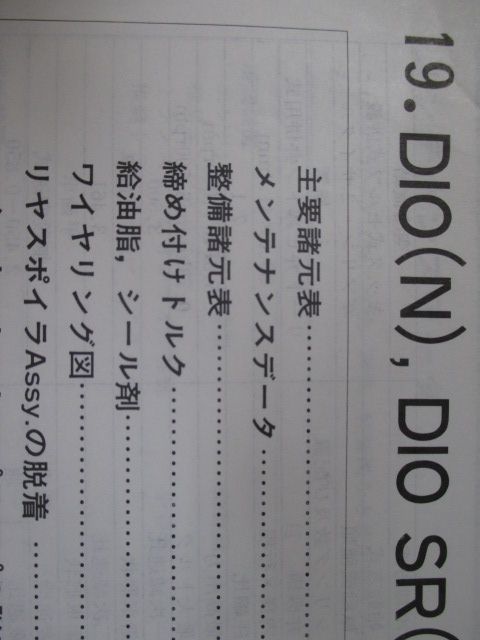 19. DIO(N), DIO SR(
主要諸元表
メンテナンスデータ
整備諸元表
締め付けトルク
給油脂，シール剤
ワイヤリング図
リヤスポイラAssy.の脱着